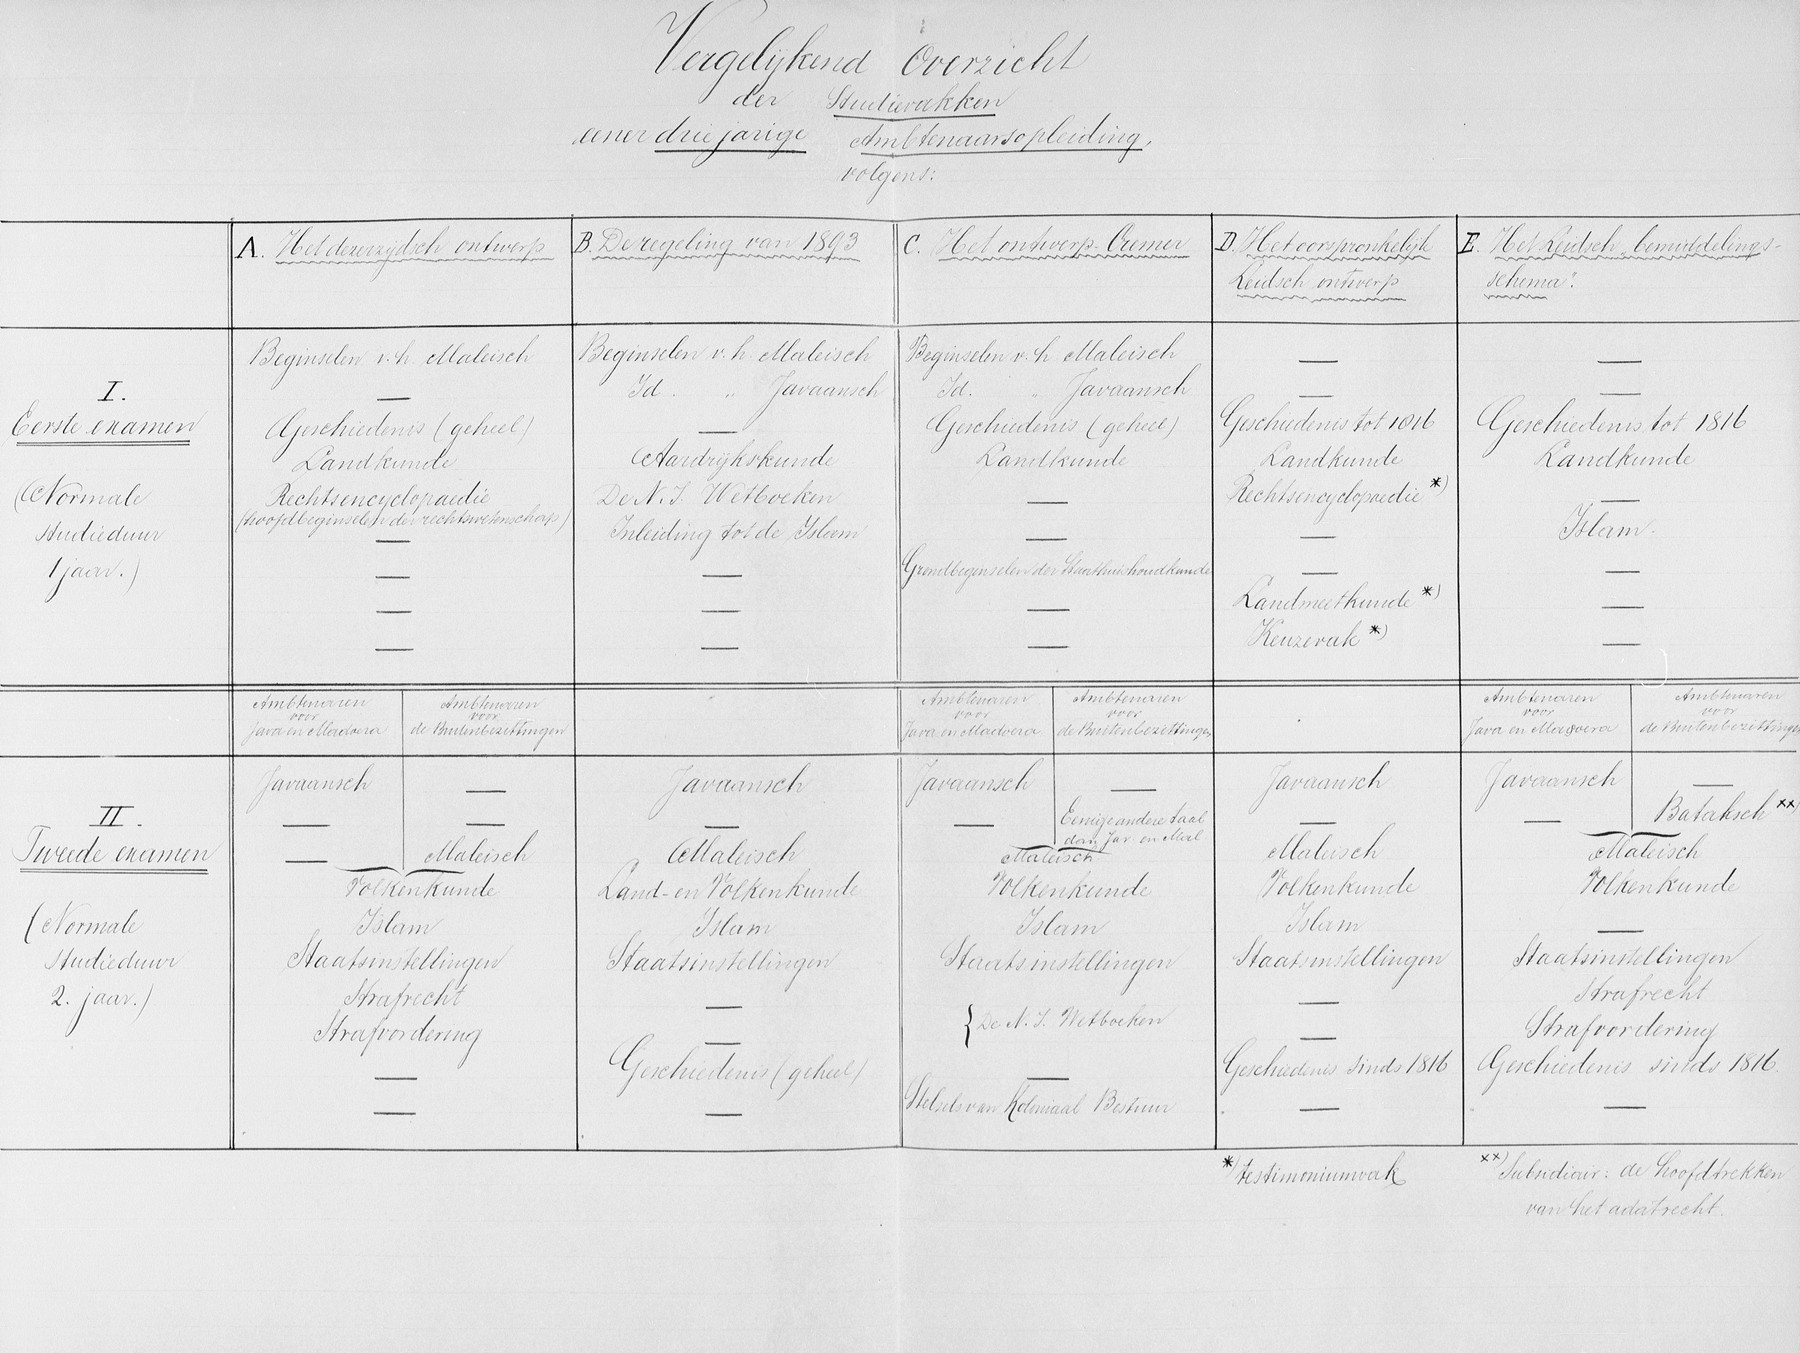 Vergelijkend Overzicht
der Studievakken
eener driejarige Ambtenaarsopleiding,
volgens:
A. Het dezerzijdsch ontwerp
B. De regeling van 1893
C. Het ontwerp-Cremer
D. Het oorspronkelijk
Leidsch ontwerp
E. Het Leidsch „bemiddelings-
schema".
I.
Eerste examen
(Normale
studieduur
1 jaar.)
Beginselen v. h. Maleisch
—
Geschiedenis (geheel)
Landkunde
Rechtsencyclopaedie
(hoofdbeginselen der rechtswetenschap)
—
—
—
—
Beginselen v. h. Maleisch
Id. „ Javaansch
—
Aardrijkskunde
De N. I. Wetboeken
Inleiding tot de Islam
—
—
—
Beginselen v. h. Maleisch
Id. „ Javaansch
Geschiedenis (geheel)
Landkunde
—
—
Grondbeginselen der Staathuishoudkunde
—
—
—
—
Geschiedenis tot 1816
Landkunde
Rechtsencyclopaedie *)
—
—
Landmeetkunde *)
Keuzevak *)
—
—
Geschiedenis tot 1816
Landkunde
—
Islam.
—
—
—
Ambtenaren
voor
Java en Madoera
Ambtenaren
voor
de Buitenbezittingen
Ambtenaren
voor
Java en Madoera
Ambtenaren
voor
de Buitenbezittingen
Ambtenaren
voor
Java en Madoera
Ambtenaren
voor
de Buitenbezittingen
II.
Tweede examen
(Normale
studieduur
2. jaar.)
Javaansch —
— —
— Maleisch
Volkenkunde
Islam
Staatsinstellingen
Strafrecht
Strafvordering
—
—
Javaansch
—
Maleisch
Land- en Volkenkunde
Islam
Staatsinstellingen
—
—
Geschiedenis (geheel)
—
Javaansch —
— Eenige andere taal
dan Jav en Mal
Maleisch
Volkenkunde
Islam
Staatsinstellingen
{ De N. I. Wetboeken
—
Stelsels van Koloniaal Bestuur
Javaansch
—
Maleisch
Volkenkunde
Islam
Staatsinstellingen
—
—
Geschiedenis sinds 1816
—
Javaansch —
— Bataksch ××)
Maleisch
Volkenkunde
—
Staatsinstellingen
Strafrecht
Strafvordering
Geschiedenis sinds 1816.
—
*) testimoniumvak
××) Subsidiair: de hoofdtrekken
van het adatrecht.